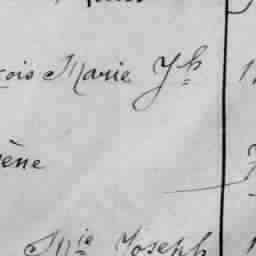 çois Marie Jh
ène
Mie Joseph